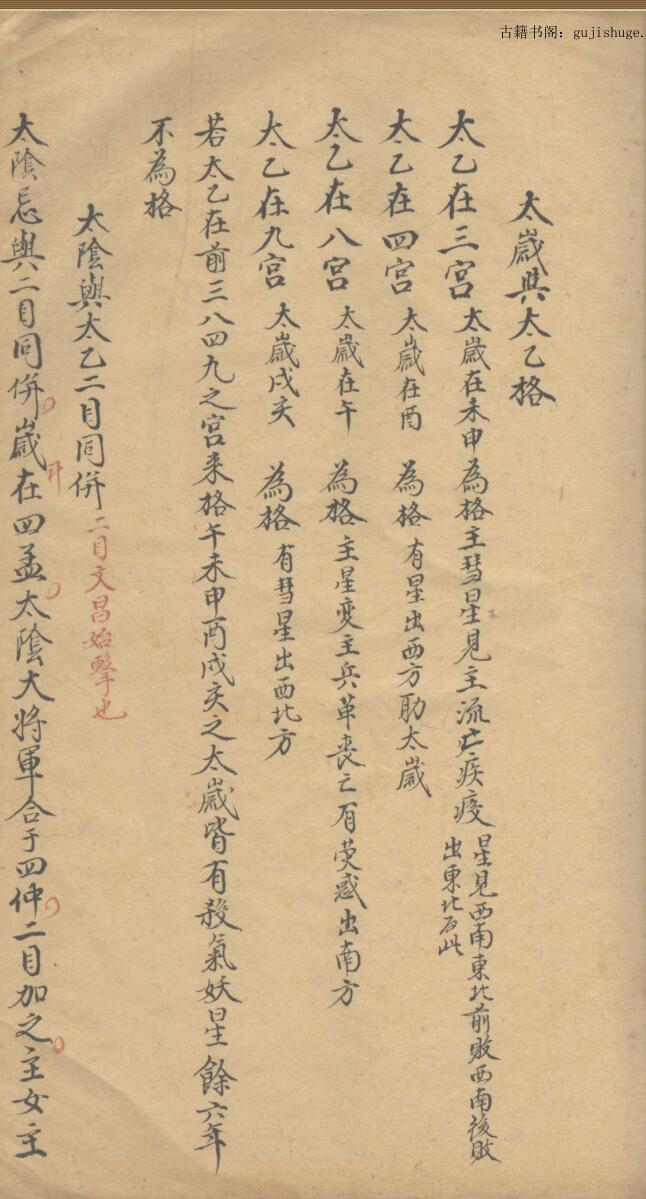 古籍书阁：gujishuge.
太歲與太乙格
太乙在三宮 太歲在未申為格主彗星見主流亡疾疫 星見西南東北前敗西南後敗
出東北
太乙在四宮 太歲在酉 為格 有星出西方助太歲
太乙在八宮 太歲在午 為格 主星变主兵革喪亡有熒惑出南方
太乙在九宮 太歲戌亥 為格 有彗星出西北方
若太乙在前三八四九之宮来格午未申酉戌亥之太歲皆有殺氣妖星餘六年
不為格
太陰與太乙二目同併 二目文昌始擊也
太陰忌與二目同併歲在四孟太陰大将軍合于四仲二目加之主女主